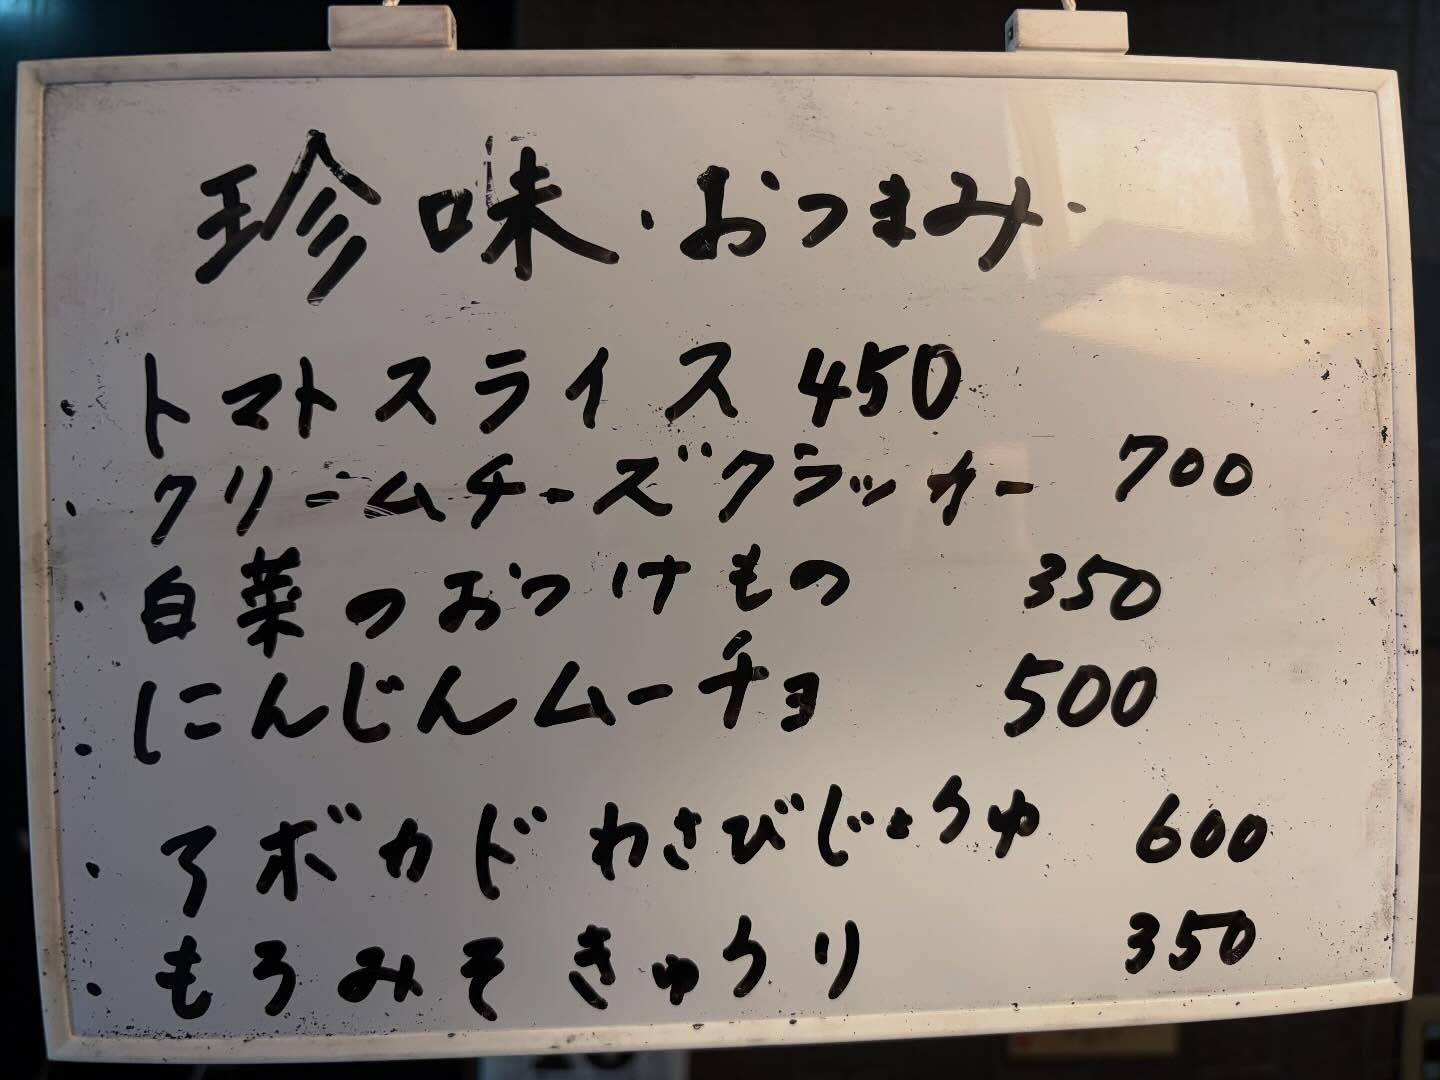 珍味・おつまみ・
・トマトスライス 450
・クリームチーズクラッカー 700
・白菜のおつけもの 350
・にんじんムーチョ 500
・アボカドわさびじょうゆ 600
・もろみそきゅうり 350